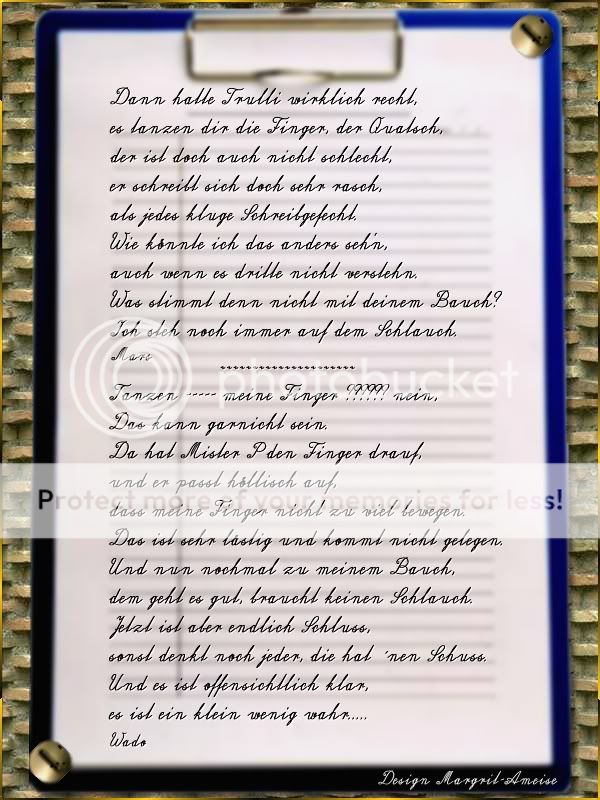 Dann hatte Trulli wirklich recht,
es tanzen dir die Finger, der Quatsch,
der ist doch auch nicht schlecht,
er schreibt sich doch sehr rasch,
als jedes kluge Schreibgefecht.
Wie könnte ich das anders seh'n,
auch wenn es dritte nicht verstehn.
Was stimmt denn nicht mit deinem Bauch?
Ich steh noch immer auf dem Schlauch.
Marc
~~~~~~~~~~~~~~~~~~~~
photobucket
Tanzen ----- meine Finger ?????? nein,
Das kann garnicht sein.
Da hat Mister P den Finger drauf,
und er passt höllisch auf,
Protect more of your memories for less!
dass meine Finger nicht zu viel bewegen.
Das ist sehr lästig und kommt nicht gelegen.
Und nun nochmal zu meinem Bauch,
dem geht es gut, braucht keinen Schlauch.
Jetzt ist aber endlich Schluss,
sonst denkt noch jeder, die hat ´nen Schuss.
Und es ist offensichtlich klar,
es ist ein klein wenig wahr.....
Wado
Design Margrit-Ameise